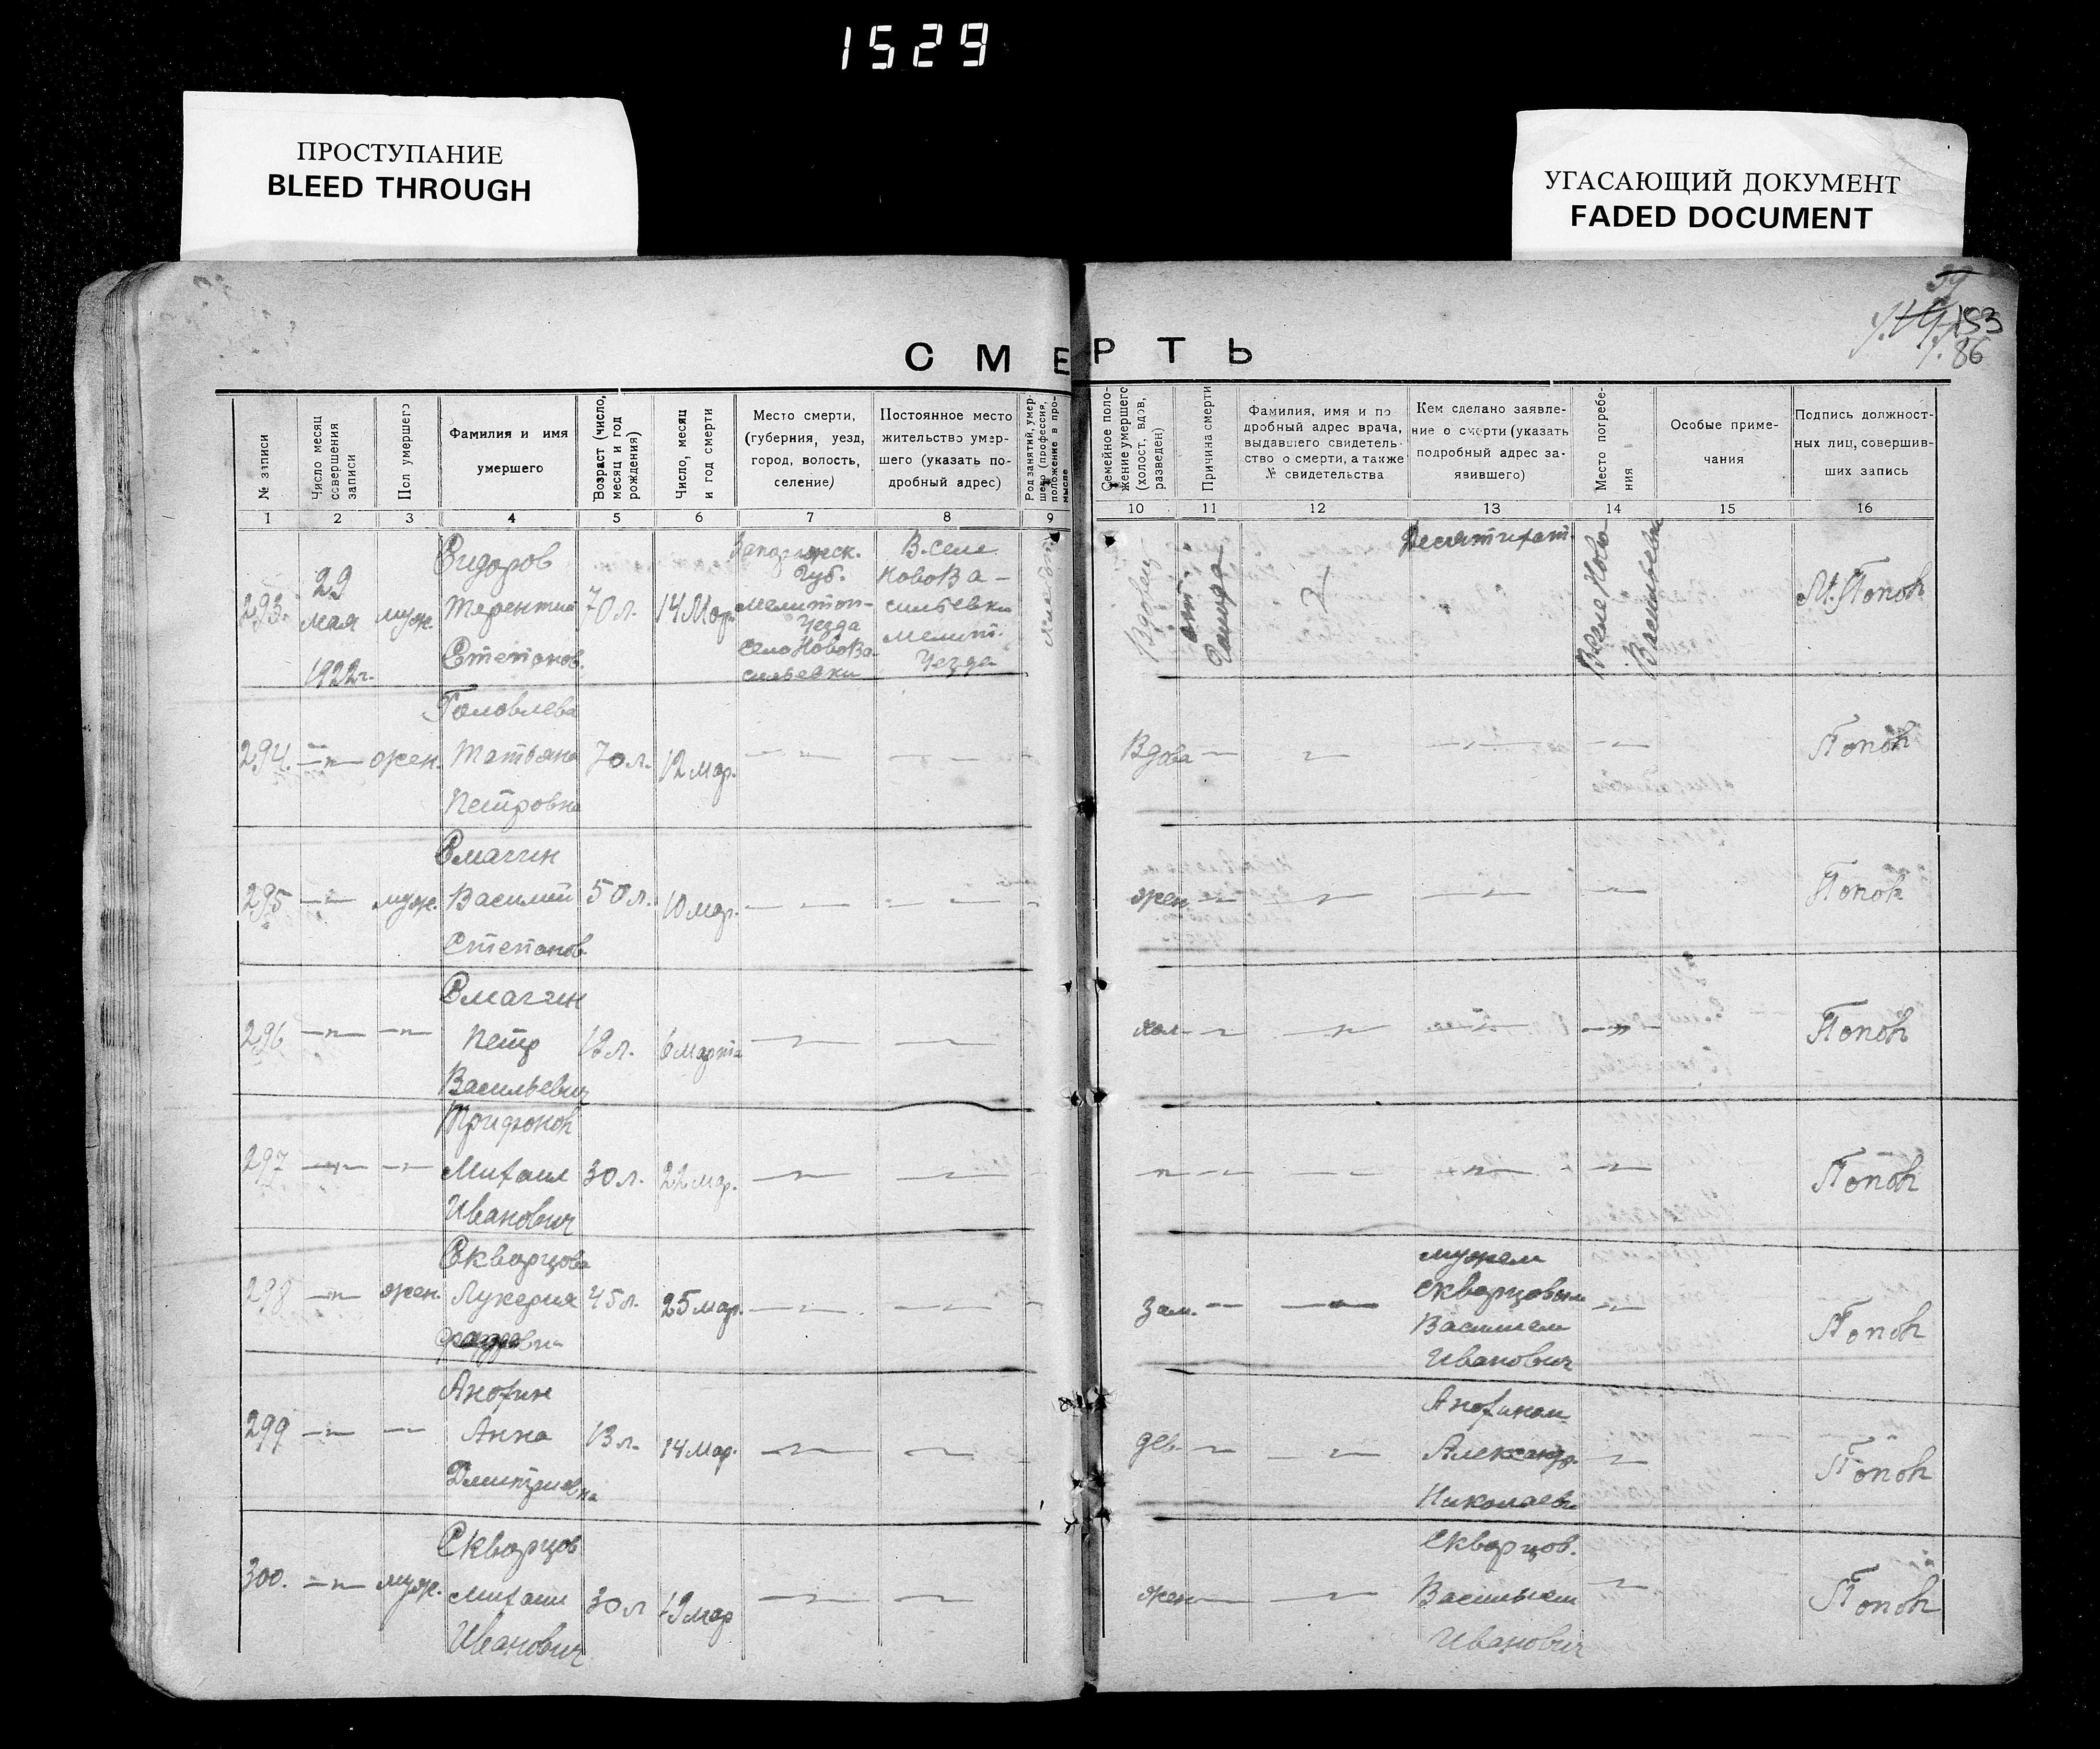 1529
ПРОСТУПАНИЕ
BLEED THROUGH
УГАСАЮЩИЙ ДОКУМЕНТ
FADED DOCUMENT
153
86
СМЕРТЬ
№ записи
Число месяц совершения записи
Пол умершего
Фамилия и имя
умершего
Возраст (число, месяц и год рождения)
Число, месяц и год смерти
Место смерти,
(губерния, уезд,
город, волость,
селение)
Постоянное место
жительство умер-
шего (указать по-
дробный адрес)
Род занятий, умер-
шего (профессия,
положение в про-
мысле
Семейное поло-
жение умершего
(холост, вдов,
разведен)
Причина смерти
Фамилия, имя и по
дробный адрес врача,
выдавшего свидетель-
ство о смерти, а также
№ свидетельства
Кем сделано заявле-
ние о смерти (указать
подробный адрес за-
явившего)
Место погребе-
ния
Особые приме-
чания
Подпись должност-
ных лиц, совершив-
ших запись
1 2 3 4 5 6 7 8 9 10 11 12 13 14 15 16
293.
29
мая
1922г.
муж.
Сидоров
Терентий
Степанов.
70 л.
14 Мар.
Губ.
Мелитоп-
Уезда
Село НовоВа-
сильевки
В. селе
НовоВа-
сильевки
Мелит.
Уезда
Вдовец
от
?
В селе Ново
Васильевки
М. Попов
294.
—"—
жен.
Головлева
Татьяна
Петровна
70 л.
12 мар.
Вдова
Попов
295
—"—
муж.
Смагин
Василий
Степанов.
50 л.
10 мар.
жен.
Попов
296
—"— —"—
Смагин
Петр
Васильевич
6 марта
хол.
Попов
297
—"— —"—
Трифонов
Михаил
Иванович
30 л.
22 мар.
"
Попов
298
—"—
жен.
Скварцова
Лукерия
45 л.
25 мар.
Зам.
мужем
Скварцовым
Василием
Иванович
Попов
299
—"— —"—
Анохин
Анна
Дмитриевна
13 л.
14 мар.
дев.
Анохином
Александр.
Николаев
Попов
300.
—"—
муж.
Скварцов
Михаил
Иванович
30 л
19 мар
жен
Скварцов.
Васильем
Иванович
Попов